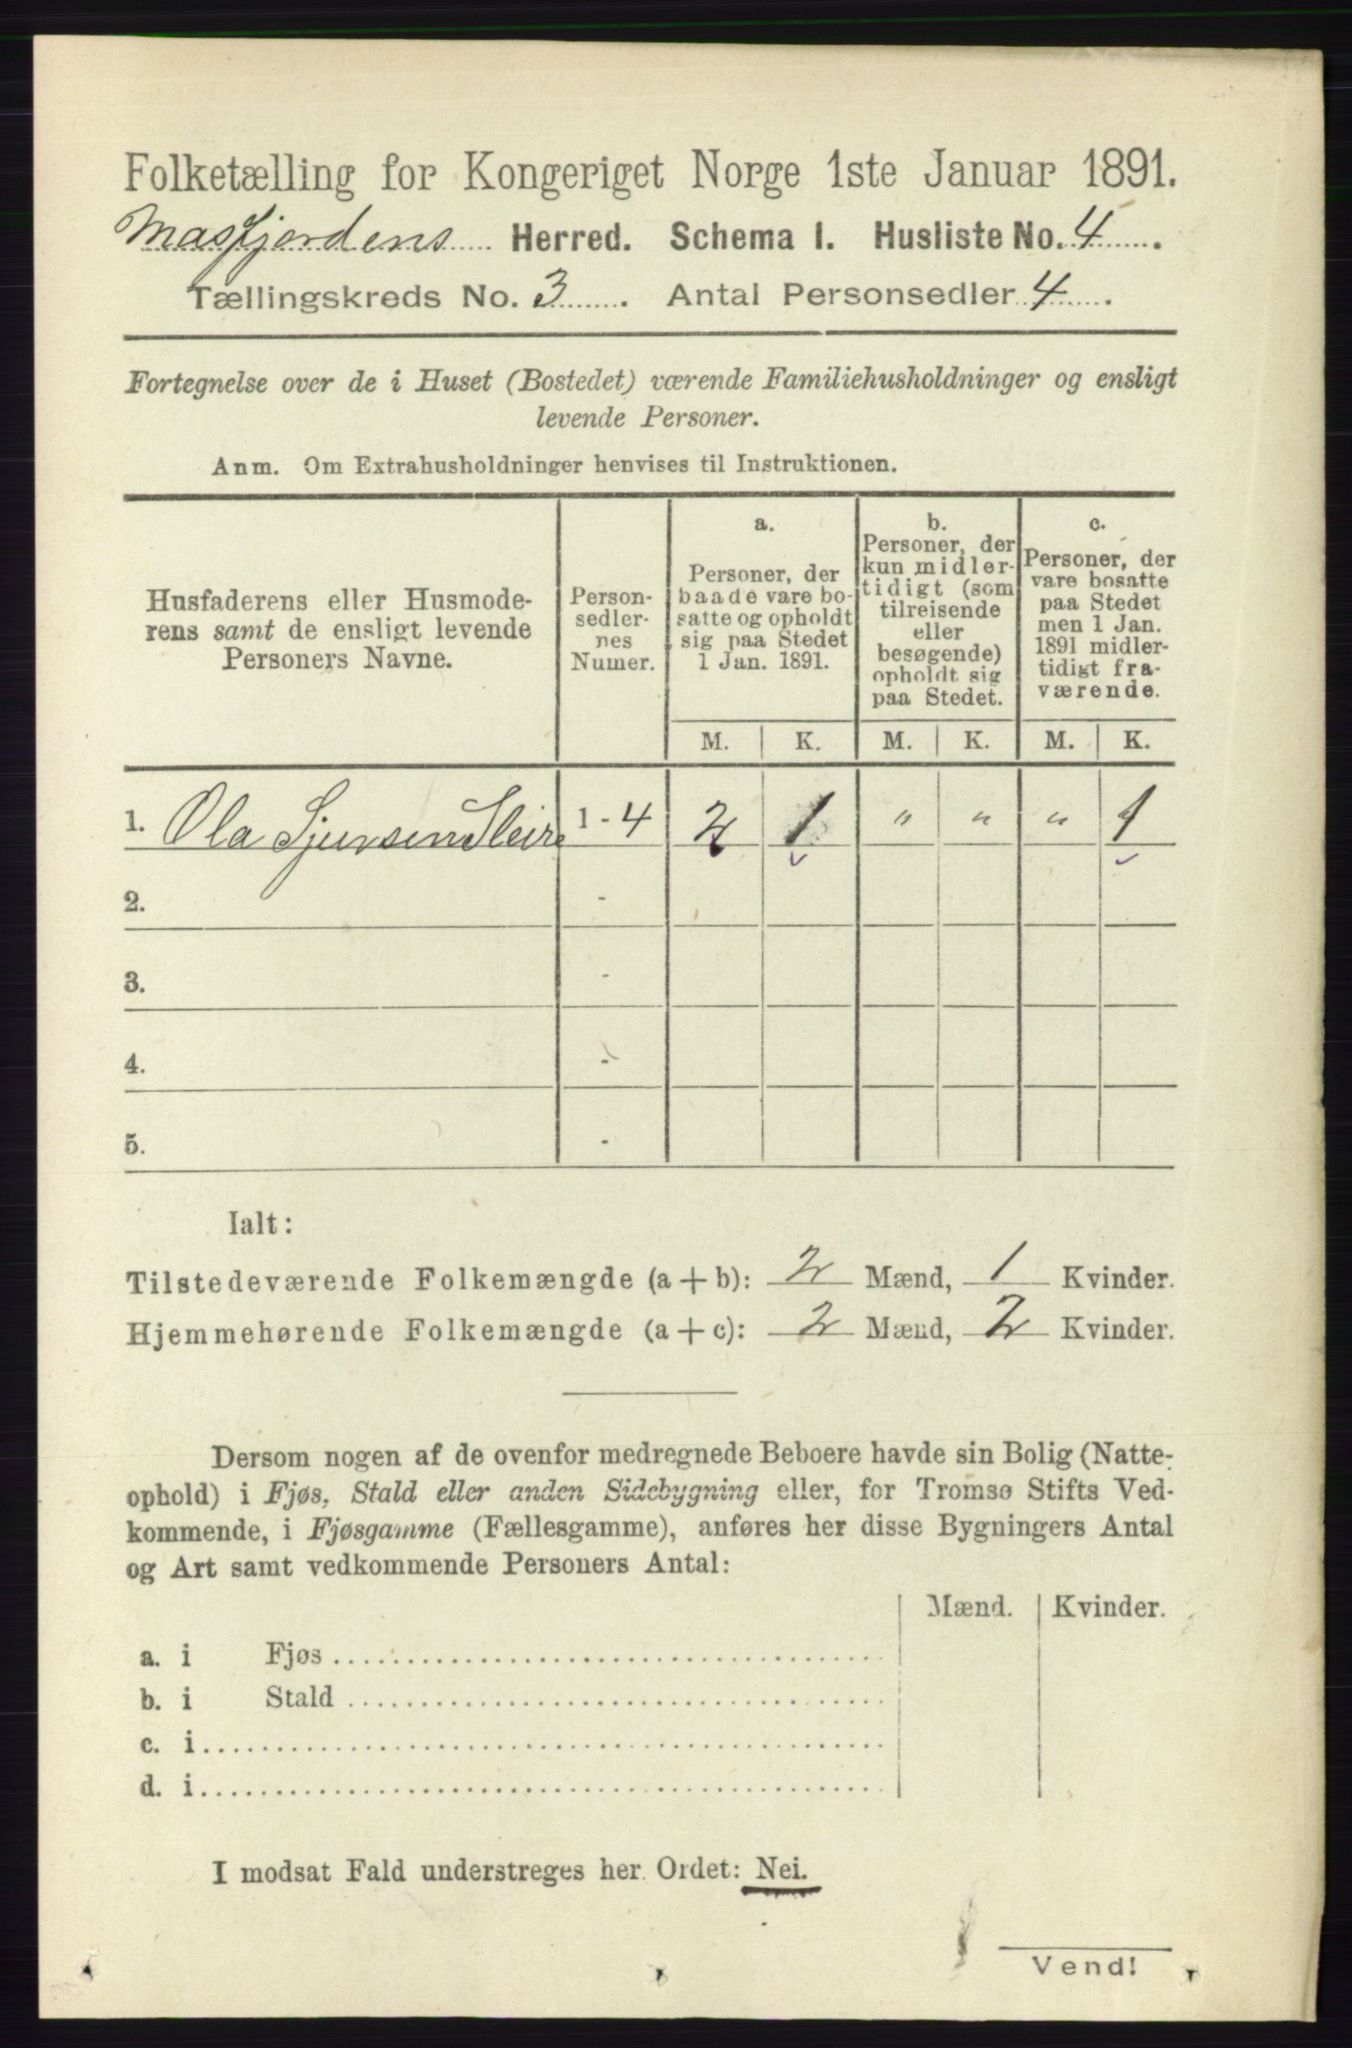 Folketælling for Kongeriget Norge 1ste Januar 1891.
Masfjordens Herred. Schema I. Husliste No. 4.
Tællingskreds No. 3. Antal Personsedler 4.
Fortegnelse over de i Huset (Bostedet) værende Familiehusholdninger og ensligt
levende Personer.
Anm. Om Extrahusholdninger henvises til Instruktionen.
Husfaderens eller Husmode-
rens samt de ensligt levende
Personers Navne.
Person-
sedler-
nes
Numer.
a.
Personer, der
baade vare bo-
satte og opholdt
sig paa Stedet
1 Jan. 1891.
b.
Personer, der
kun midler-
tidigt (som
tilreisende
eller
besøgende)
opholdt sig
paa Stedet.
c.
Personer, der
vare bosatte
paa Stedet
men 1 Jan.
1891 midler-
tidigt fra-
værende.
M. K. M. K. M. K.
1. Ola Sjursen Sleire 1 - 4 2 1 " " " 1
2. -
3. -
4. -
5. -
Ialt:
Tilstedeværende Folkemængde (a + b): 2 Mænd, 1 Kvinder.
Hjemmehørende Folkemængde (a + c): 2 Mænd, 2 Kvinder.
Dersom nogen af de ovenfor medregnede Beboere havde sin Bolig (Natte-
ophold) i Fjøs, Stald eller anden Sidebygning eller, for Tromsø Stifts Ved-
kommende, i Fjøsgamme (Fællesgamme), anføres her disse Bygningers Antal
og Art samt vedkommende Personers Antal:
Mænd. Kvinder.
a. i Fjøs
b. i Stald
c. i
d. i
I modsat Fald understreges her Ordet: Nei.
Vend!